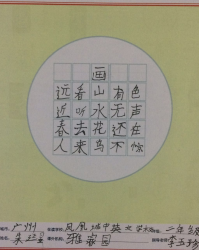 画
远看山有色
近听水无声
春去花还在
人来鸟不惊
广州
凤凰城中英文学校
二年级
雅家园